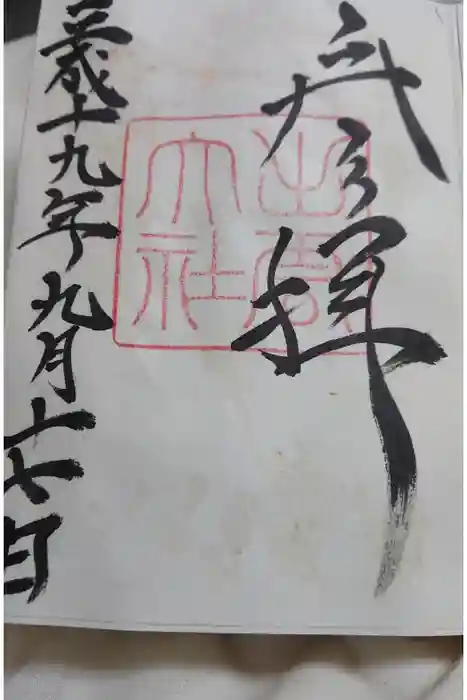 参拝
出雲
大社
平成十九年九月十七日